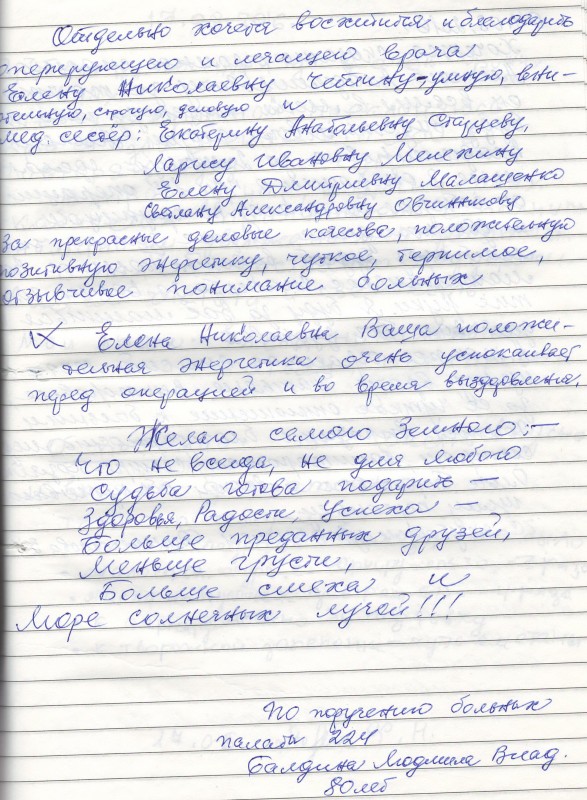 Отдельно хочется восхититься и благодарить
оперирующего и лечащего врача
Елену Николаевну Чепкину - умную, вни-
тельную, строгую, деловую и
мед. сестёр: Екатерину Анатольевну Старцеву,
Ларису Ивановну Мележину
Елену Дмитриевну Малащенко
Светлану Александровну Овчинникову
За прекрасные деловые качества, положительную
позитивную энергетику, чуткое, терпимое,
отзывчивое понимание больных
Елена Николаевна Ваша положи-
тельная энергетика очень успокаивает
перед операцией и во время выздовления,
Желаю самого Земного: -
Что не всегда, не для любого
Судьба готова подарить -
Здоровья, Радости, Успеха -
Больше преданных друзей,
Меньше грусти,
Больше смеха и
Море солнечных лучей!!!
По поручению больных
палаты 224
Балдина Людмила Влад.
80 лет